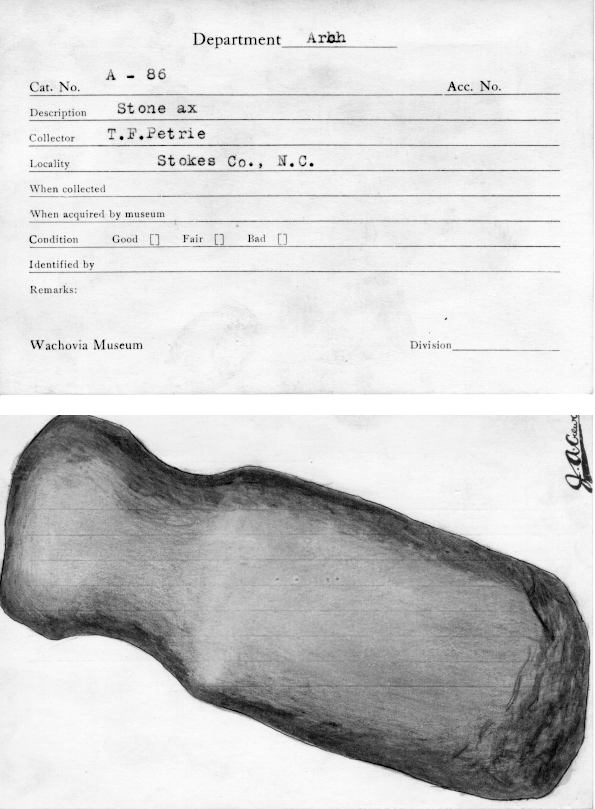 Department Arch
Cat. No. A - 86 Acc. No.
Description Stone ax
Collector T.F.Petrie
Locality Stokes Co., N.C.
When collected
When acquired by museum
Condition Good [] Fair [] Bad []
Identified by
Remarks:
Wachovia Museum Division
J. A.